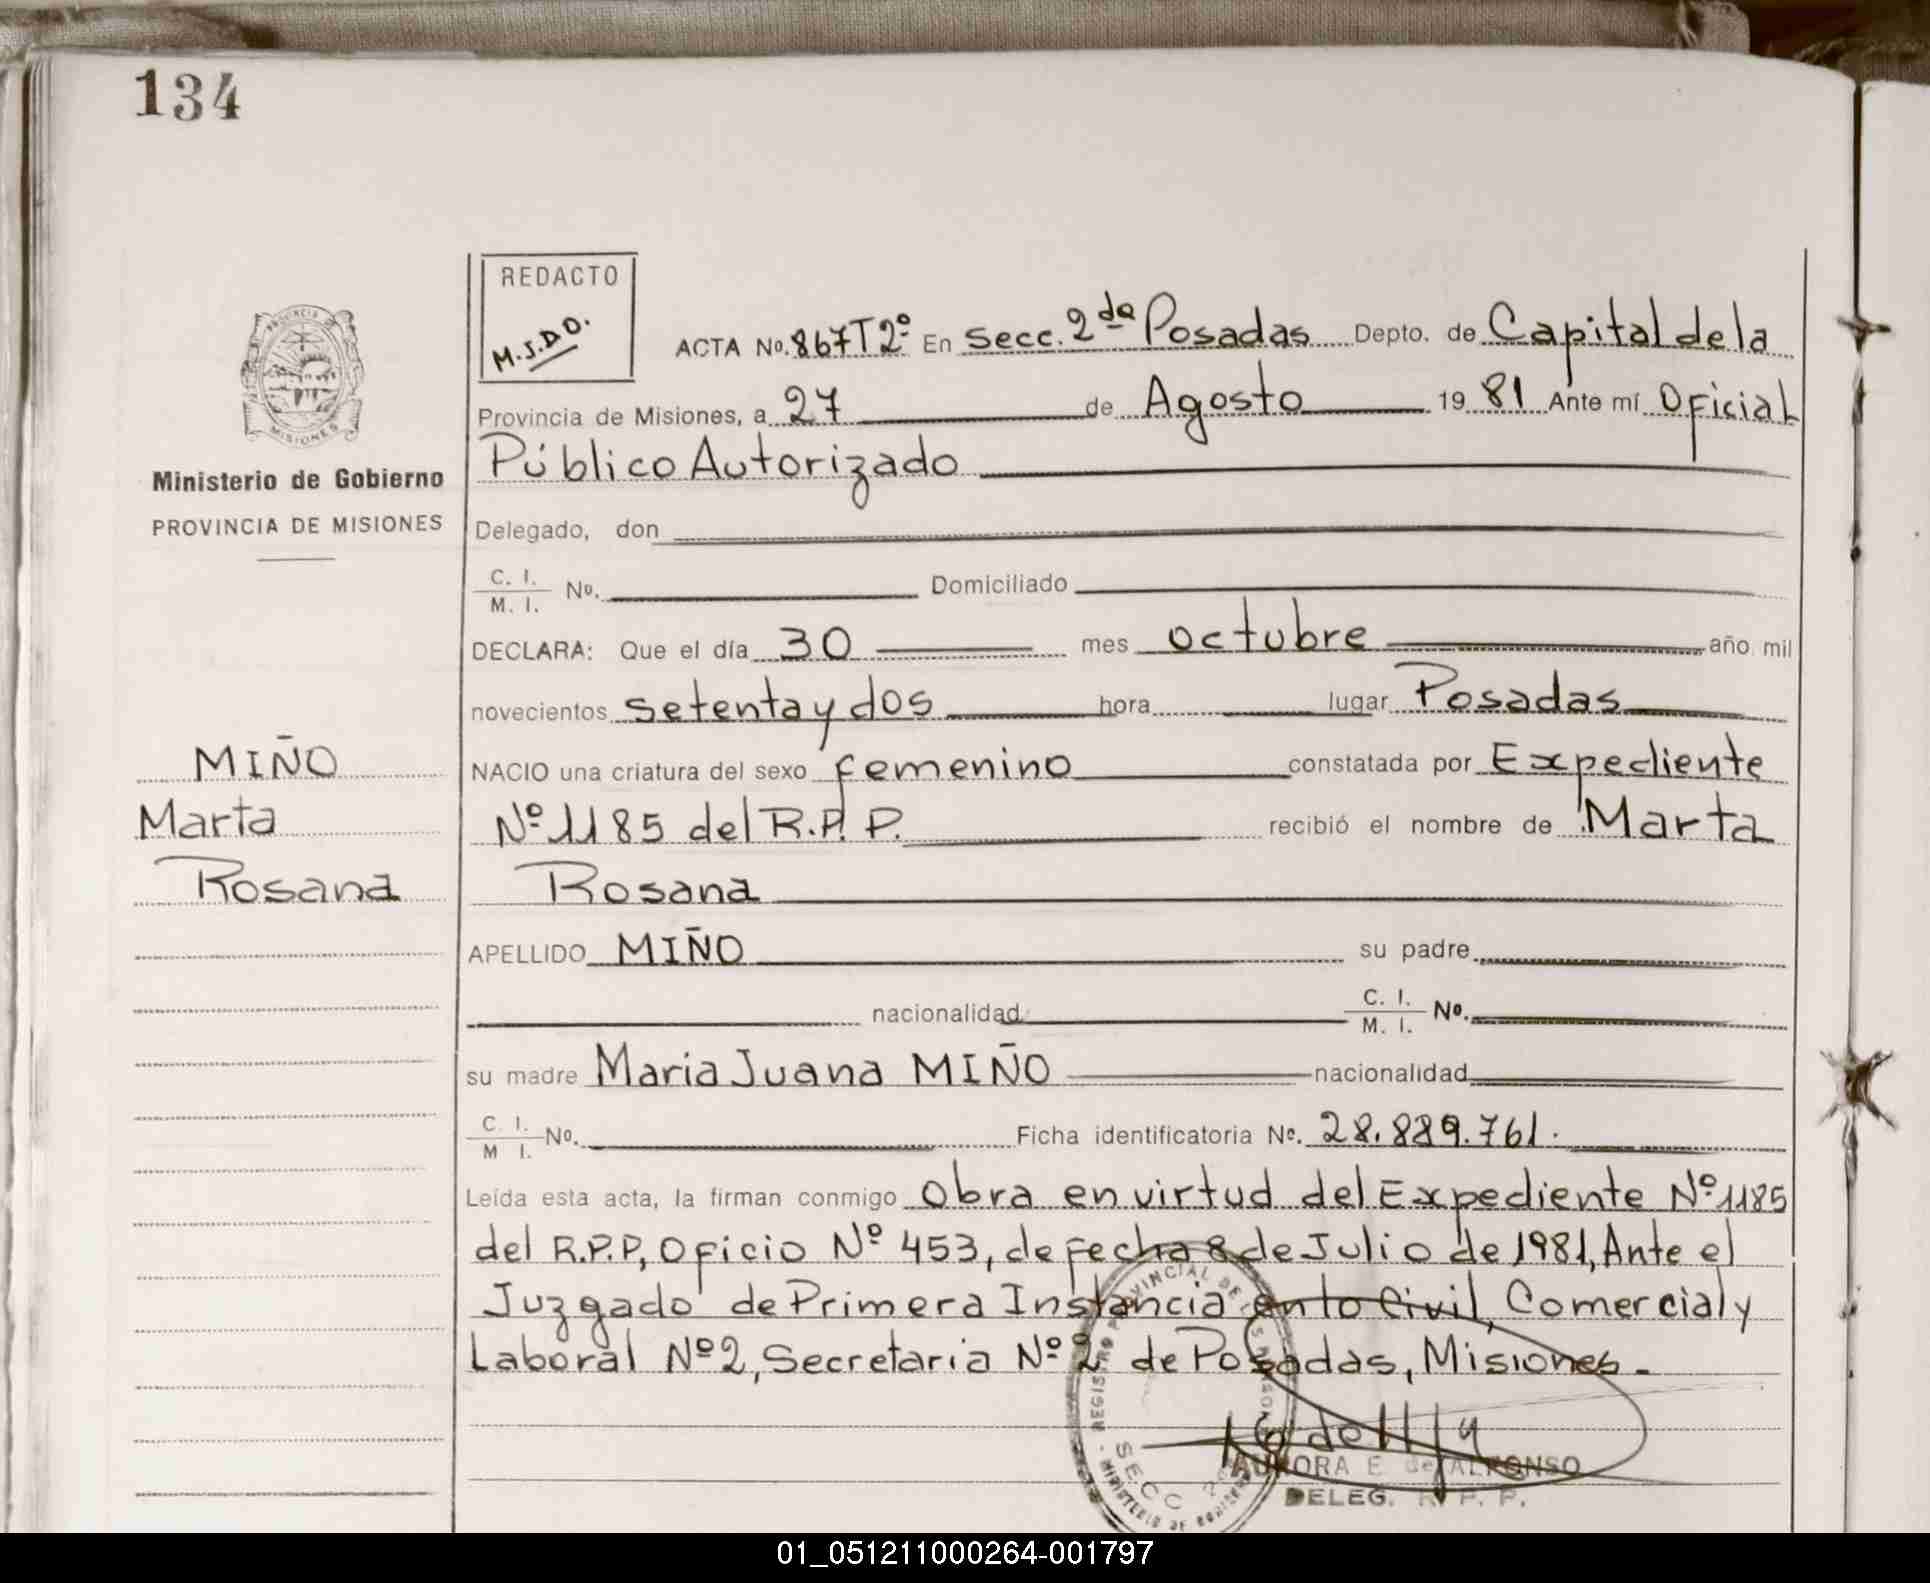 134
REDACTO
M.J.D.O.
ACTA No. 867 T 2º En Secc. 2da Posadas Depto. de Capital de la
Provincia de Misiones, a 27 de Agosto 1981 Ante mí Oficial
Público Autorizado
Delegado, don
C. I. M. I. No. Domiciliado
DECLARA: Que el día 30 mes octubre año mil
novecientos setenta y dos hora lugar Posadas
NACIO una criatura del sexo femenino constatada por Expediente
Nº 1185 del R.P.P. recibió el nombre de Marta
Rosana
APELLIDO MIÑO su padre
nacionalidad C. I. M. I. No.
su madre Maria Juana MIÑO nacionalidad
C. I. M I. No. Ficha identificatoria No. 28.889.761.
Leída esta acta, la firman conmigo Obra en virtud del Expediente Nº 1185
del R.P.P, Oficio Nº 453, de fecha 8 de Julio de 1981, Ante el
Juzgado de Primera Instancia en lo Civil, Comercial y
Laboral Nº 2, Secretaria Nº 2 de Posadas, Misiones.-
AURORA E. de ALFONSO
DELEG. R. P. P.
REGISTRO PROVINCIAL DE LAS PERSONAS
SECC 2
MINISTERIO DE GOBIERNO
PROVINCIA
MISIONES
Ministerio de Gobierno
PROVINCIA DE MISIONES
MIÑO
Marta
Rosana
01_051211000264-001797